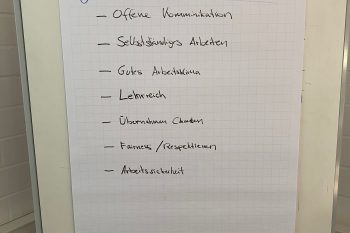 – Offene Kommunikation
– Selbstständiges Arbeiten
– Gutes Arbeitsklima
– Lehrreich
– Übernahme Chancen
– Fairness / Respektieren
– Arbeitssicherheit